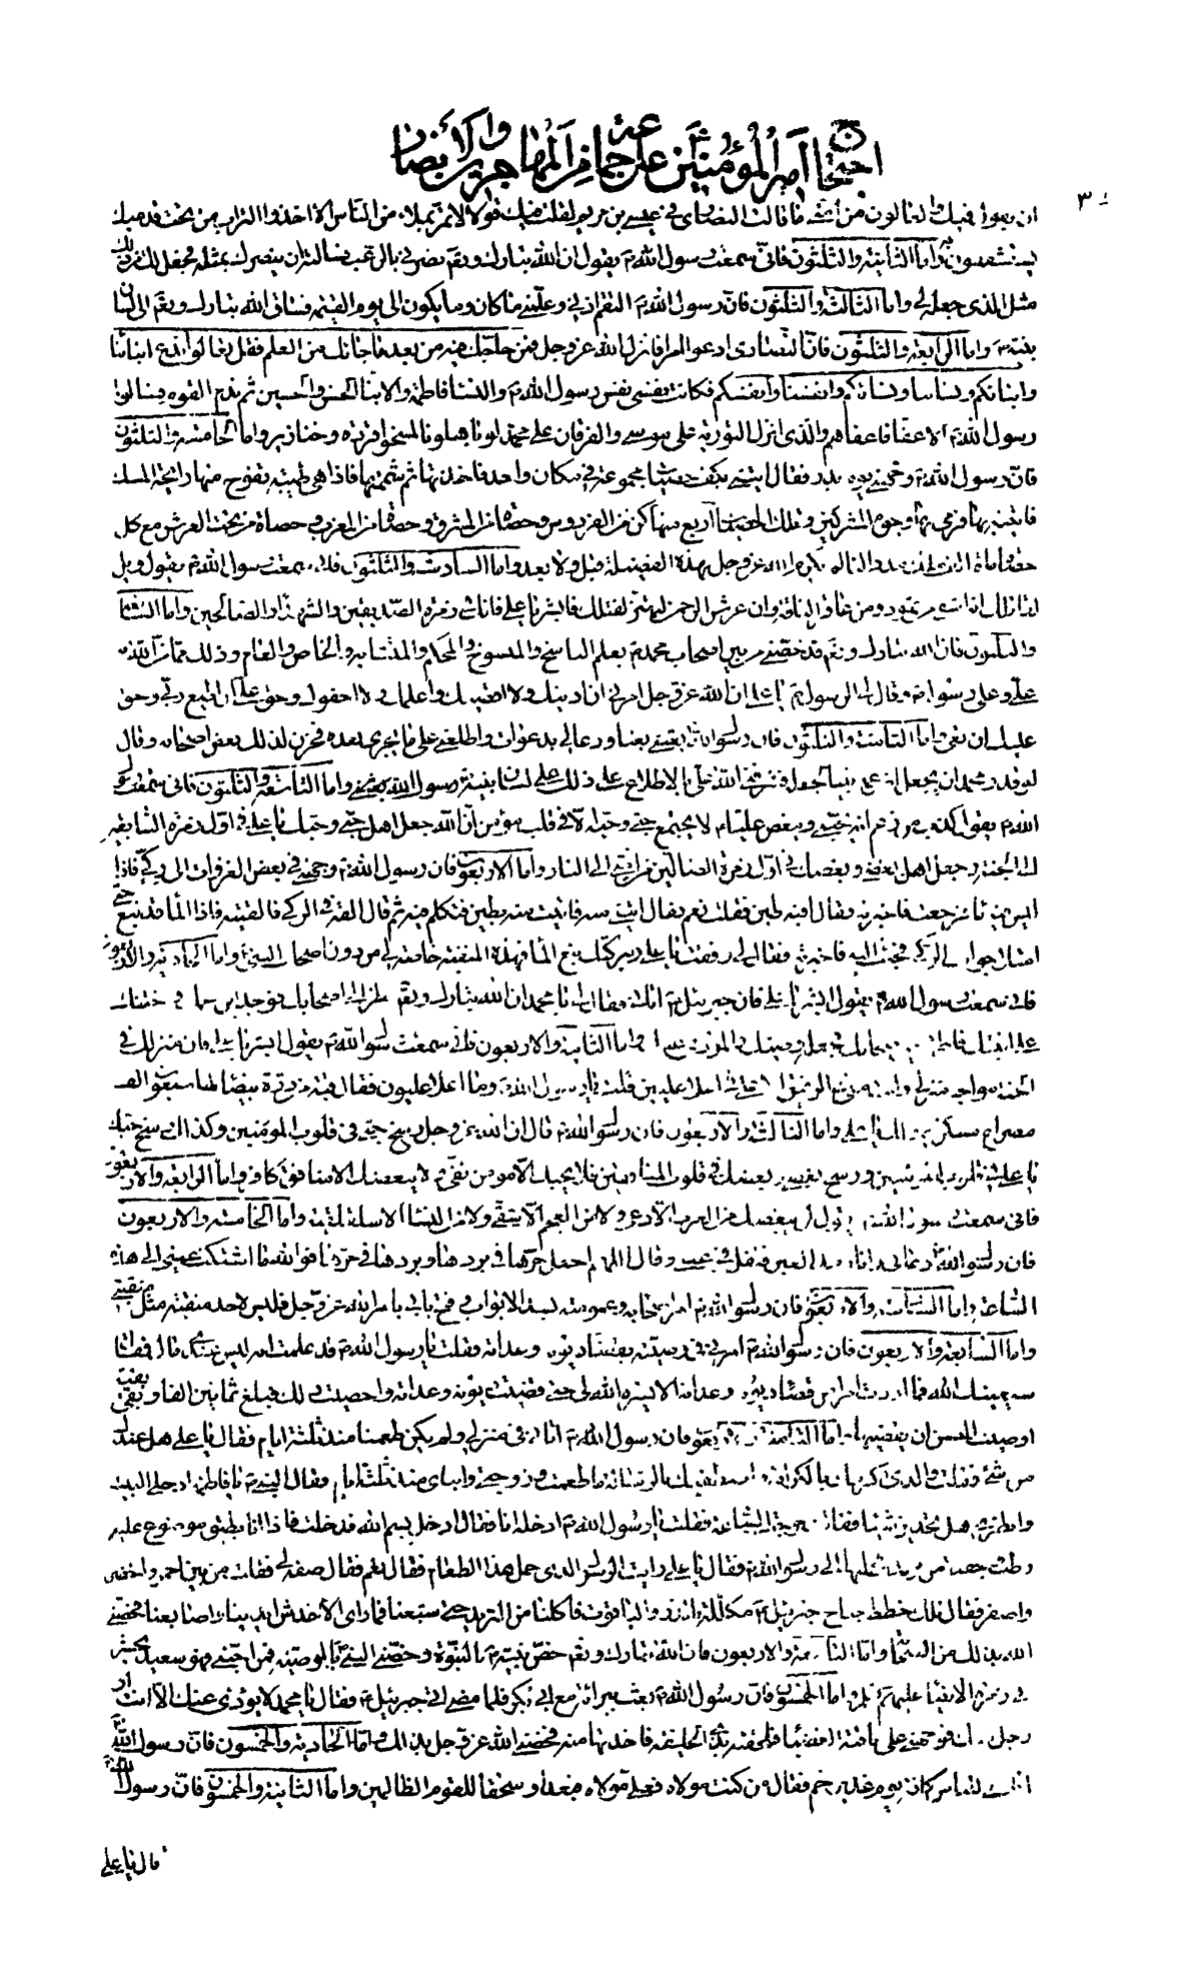 احتجاج أمير المؤمنين على جماعة من المهاجرين والأنصار
٣
ان يقولوا فيك الغالون من أمتى ما قالت النصارى فى عيسى بن مريم لقلت فيك قولا لا تمر بملاء من الناس الا اخذوا التراب من تحت قدميك
يستشفون به واما الثانية والثلثون فانى سمعت رسول الله ص يقول ان الله تبارك وتعم نصرنى بالرعب فسالته ان ينصرك بمثله فجعل لك من ذلك
مثل الذى جعله لى واما الثالثة والثلثون فان رسول الله ص التقم اذنى وعلمنى ما كان وما يكون الى يوم القيمة فساق الله تبارك وتعم الى لسان
نبيه ص واما الرابعة والثلثون فان النصارى ادعوا امرا فانزل الله عز وجل فمن حاجك فيه من بعد ما جائك من العلم فقل تعالوا ندع ابنائنا
وابنائكم ونسائنا ونسائكم وانفسنا وانفسكم فكانت نفسى نفس رسول الله ص والنساء فاطمة والابناء الحسن والحسين ثم ندم القوم فسالوا
رسول الله ص الاعفاء فاعفاهم والذى انزل التورية على موسى والفرقان على محمد لو باهلونا لمسخوا قردة وخنازير واما الخامسة والثلثون
فان رسول الله ص وجهنى يوم بدر فقال ايتنى بكف حصيات مجموعة فى مكان واحد فاخذتها ثم شممتها فاذا هى طيبة تفوح منها رايحة المسك
فاتيته بها فرمى بها وجوه المشركين وتلك الحصيات اربع منها كن من الفردوس وحصاة من المشرق وحصاة من المغرب وحصاة من تحت العرش مع كل
حصاة مائة الف ملك مددا لنا لم يكرم الله عز وجل بهذه الفضيلة قبل ولا بعد واما السادسة والثلثون فانى سمعت رسول الله ص يقول ويل
لقاتلك انه اشقى من ثمود ومن عاقر الناقة وان عرش الرحمن ليهتز لقتلك فابشر يا على فانك فى زمرة الصديقين والشهداء والصالحين واما السابعة
والثلثون فان الله تبارك وتعم قد خصنى من بين اصحاب محمد ص بعلم الناسخ والمنسوخ والمحكم والمتشابه والخاص والعام وذلك مما من الله به
على وعلى رسوله وقال لى الرسول ص يا على ان الله عز وجل امرنى ان ادنيك ولا اقصيك واعلمك ولا اجفوك وحق على ان اطيع ربى وحق
عليك ان تعى واما الثامنة والثلثون فان رسول الله ص بعثنى بعثا ودعا لى بدعوات واطلعنى على ما يجرى بعده فحزن لذلك بعض اصحابه وقال
لو قدر محمد ان يجعل ابن عمه نبيا لجعله فشرفنى الله على بالاطلاع على ذلك على لسان نبيه ص واما التاسعة والثلثون فانى سمعت رسول
الله ص يقول كذب من زعم انه يحبنى ويبغض عليا لا يجتمع حبى وحبه الا فى قلب مؤمن ان الله جعل اهل حبى وحبك يا على فى اول زمرة السابقين
الى الجنة وجعل اهل بغضى وبغضك فى اول زمرة الضالين من امتى الى النار واما الاربعون فان رسول الله ص وجهنى فى بعض الغزوات الى ركى فاذا
ليس فيه ماء فرجعت فاخبرته فقال افيه طين فقلت نعم فقال ايتنى منه فاتيت منه بطين فتكلم فيه ثم قال القه فى الركى فالقيته فاذا الماء قد نبع حتى
امتلا جوانب الركى فجئت اليه فاخبرته فقال لى وفقت يا على وببركتك نبع الماء فهذه المنقبة خاصة لى من دون اصحاب النبى ص واما الحادية والاربعون
فانى سمعت رسول الله ص يقول ابشر يا على فان جبرئيل ص اتانى فقال لى يا محمد ان الله تبارك وتعم نظر الى اصحابك فوجد ابن عمك وختنك
واما الثانية والاربعون فانى سمعت رسول الله ص يقول ابشر يا على فان منزلك فى
الجنة مواجه منزلى وانت معى فى الرفيق الاعلى فى اعلا عليين قلت يا رسول الله ص وما اعلا عليون فقال قبة من درة بيضاء لها سبعون الف
مصراع مسكن لى ولك يا على واما الثالثة والاربعون فان رسول الله ص قال ان الله عز وجل رسخ حبى فى قلوب المؤمنين وكذلك رسخ حبك
يا على فى قلوب المؤمنين ورسخ بغضى وبغضك فى قلوب المنافقين فلا يحبك الا مومن تقى ولا يبغضك الا منافق كافر واما الرابعة والاربعون
فانى سمعت رسول الله ص يقول لن يبغضك من العرب الا دعى ولا من العجم الا شقى ولا من النساء الا سلقلقية واما الخامسة والاربعون
فان رسول الله ص دعانى وانا رمد العين فتفل فى عينى وقال اللهم اجعل حرها فى بردها وبردها فى حرها فوالله ما اشتكت عينى الى هذه
الساعة واما السادسة والاربعون فان رسول الله ص امر اصحابه وعمومته بسد الابواب وفتح بابى بامر الله عز وجل فليس لاحد منقبة مثل منقبتى
واما السابعة والاربعون فان رسول الله ص امرنى فى وصيته بقضاء ديونه وعداته فقلت يا رسول الله ص قد علمت انه ليس عندى مال فقال
سيعينك الله فما اردت امرا من قضاء ديونه وعداته الا يسره الله لى حتى قضيت ديونه وعداته واحصيت ذلك فبلغ ثمانين الفا وبقى بقية
اوصيت الحسن ان يقضيها واما الثامنة والاربعون فان رسول الله ص اتانى فى منزلى ولم يكن طعمنا منذ ثلثة ايام فقال يا على هل عندك
من شئ فقلت والذى اكرمك بالكرامة واصطفاك بالرسالة ما طعمت وزوجتى وابناى منذ ثلثة ايام فقال النبى ص يا فاطمة ادخلى البيت
وانظرى هل تجدين شيئا فقالت خرجت الساعة فقلت يا رسول الله ص ادخله انا فقال ادخل بسم الله فدخلت فاذا انا بطبق موضوع عليه
رطب وجفنة من ثريد فحملتها الى رسول الله ص فقال يا على رايت الرسول الذى حمل هذا الطعام فقلت نعم فقال صفه لى فقلت من بين احمر واخضر
واصفر فقال تلك خطط جناح جبرئيل ع مكللة بالدر والياقوت فاكلنا من الثريد حتى شبعنا فما راى الا خدش ايدينا واصابعنا فخصنى
الله بذلك من بين الصحابة واما التاسعة والاربعون فان الله تبارك وتعم خص نبيه ص بالنبوة وخصنى النبى بالوصية فمن احبنى فهو سعيد يحشر
فى زمرة الانبياء عليهم السلم واما الخمسون فان رسول الله ص بعث ببراءة مع ابى بكر فلما مضى اتى جبرئيل ع فقال يا محمد لا يؤدى عنك الا انت او
رجل منك فوجهنى على ناقته العضباء فلحقته بذى الحليفة فاخذتها منه فخصنى الله عز وجل بذلك واما الحادية والخمسون فان رسول الله ص
اقامنى للناس كافة يوم غدير خم فقال من كنت مولاه فعلى مولاه فبعدا وسحقا للقوم الظالمين واما الثانية والخمسون فان رسول الله ص
قال يا على